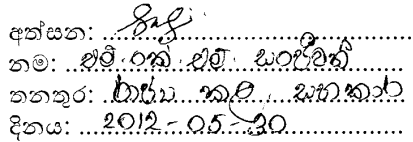 අත්සන:
නම: එම් කේ එම් සංජීවනී
තනතුර: රාජ්‍ය කළ සහකාර
දිනය: 2012-05-30